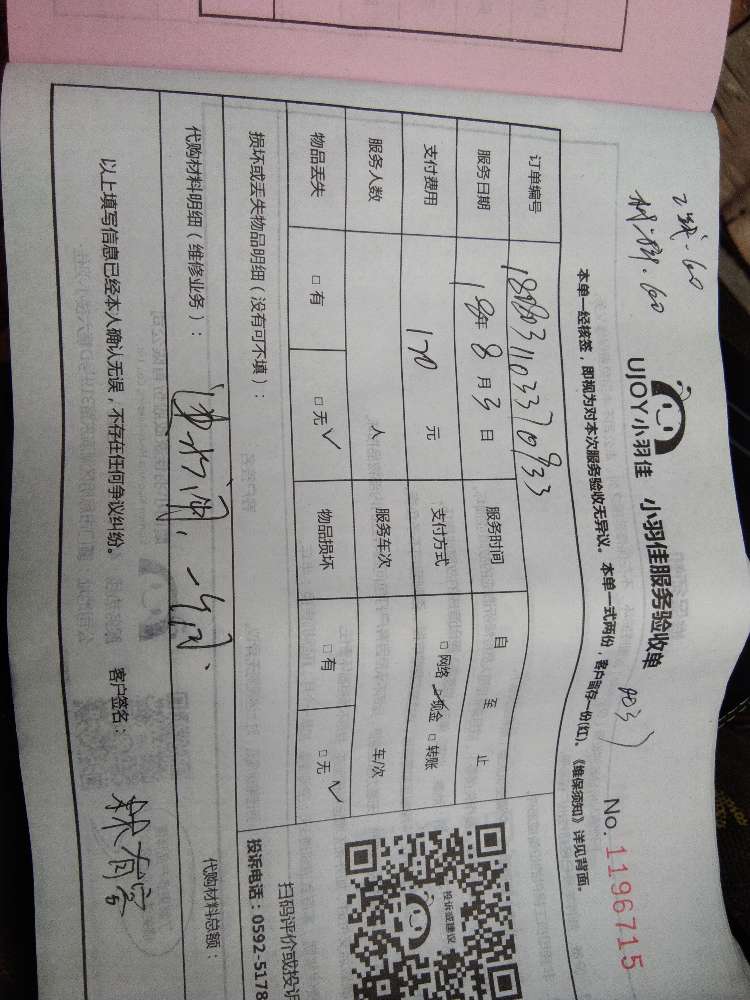 UJOY小羽佳 小羽佳服务验收单 No.1196715
本单一经核签，即视为对本次服务验收无异议。本单一式两份，客户留存一份(红)。《维保须知》详见背面。
订单编号
服务日期 18年 8月 3日 服务时间 自 至 止
支付费用 170 元 支付方式 □网络 □现金 □转账
服务人数 人 服务车次 车/次
物品丢失 □有 □无 ✓ 物品损坏 □有 □无 ✓
损坏或丢失物品明细（没有可不填）：
代购材料明细（维修业务）： 代购材料总额：
以上填写信息已经本人确认无误，不存在任何争议纠纷。 客户签名：
投诉或建议
扫码评价或投诉
投诉电话：0592-5178